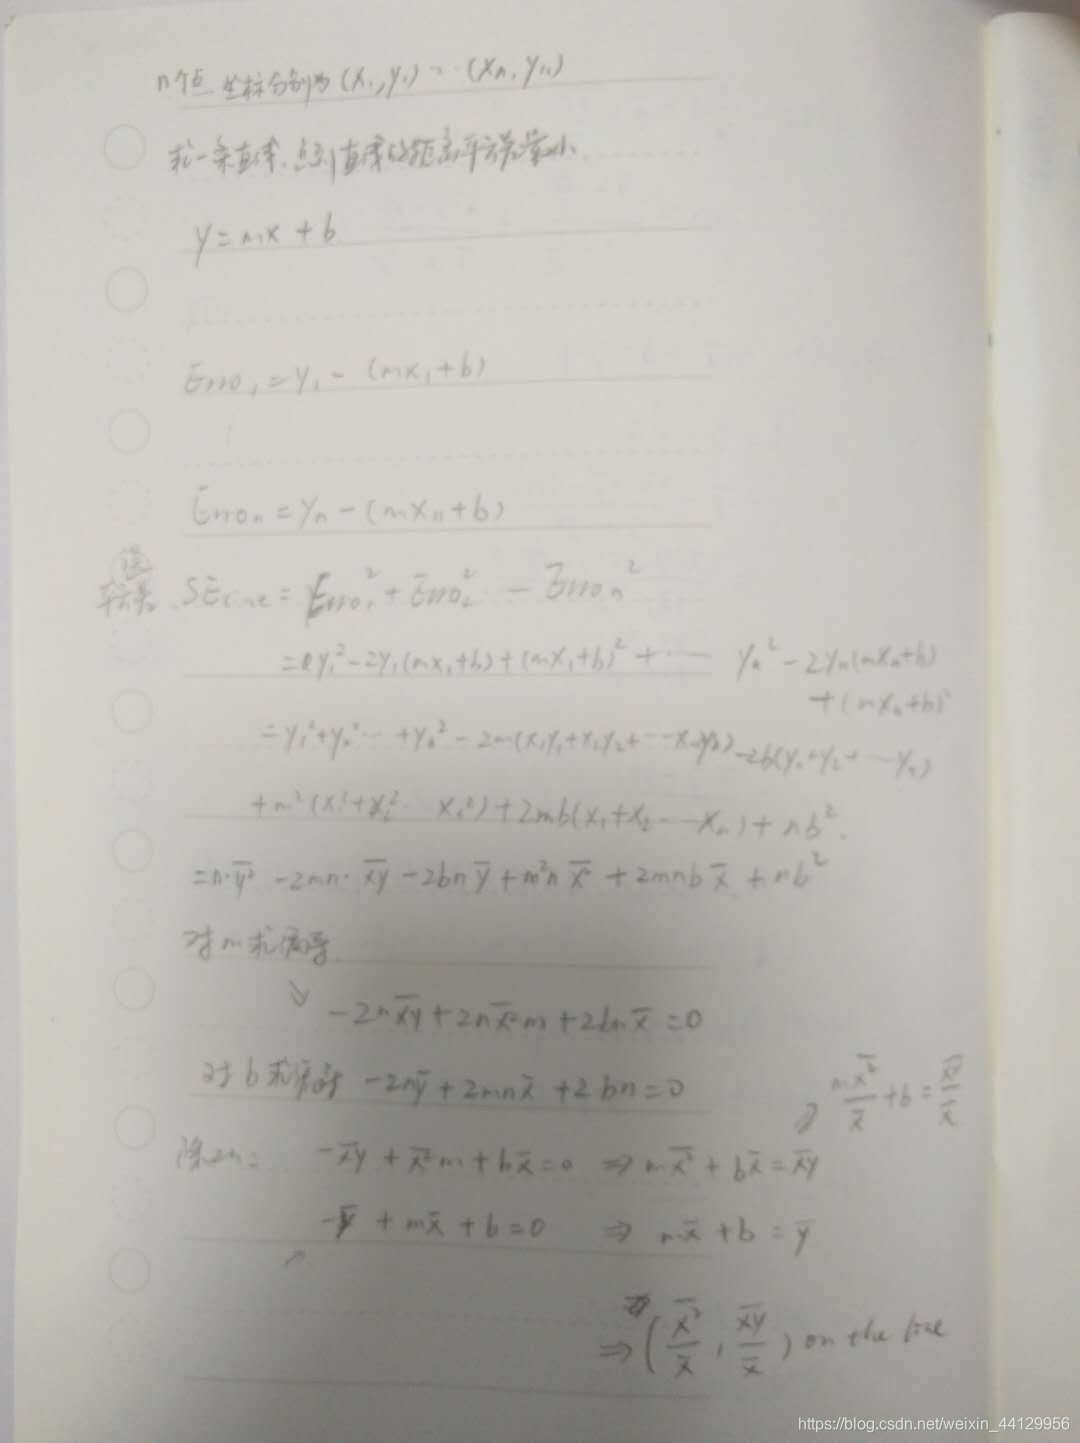 n个点 坐标分别为 (x₁, y₁) ⋯ (xₙ, yₙ)
求一条直线, 点到直线的距离平方差最小
y = mx + b
Erro₁ = y₁ - (mx₁+b)
Erroₙ = yₙ - (mxₙ+b)
SE_Line = Erro₁² + Erro₂² ⋯ Erroₙ²
= y₁² - 2y₁(mx₁+b) + (mx₁+b)² + ⋯ yₙ² - 2yₙ(mxₙ+b)
+ (mxₙ+b)²
= y₁² + y₂² ⋯ + yₙ² - 2m(x₁y₁ + x₂y₂ + ⋯ xₙyₙ) - 2b(y₁+y₂+⋯yₙ)
+ m²(x₁²+x₂² xₙ²) + 2mb(x₁+x₂⋯xₙ) + nb²
= n·y̅²̅ - 2mn·x̅y̅ - 2bny̅ + m²n x̅²̅ + 2mnb x̅ + nb²
对m求偏导
-2n x̅y̅ + 2n x̅²̅ m + 2bn x̅ = 0
对b求偏导 -2ny̅ + 2mnx̅ + 2bn = 0
⇒ m x̅²̅ / x̅ + b = x̅y̅ / x̅
除2n: -x̅y̅ + x̅²̅ m + b x̅ = 0 ⇒ m x̅²̅ + b x̅ = x̅y̅
-y̅ + m x̅ + b = 0 ⇒ m x̅ + b = y̅
⇒ ( x̅²̅ / x̅ , x̅y̅ / x̅ ) on the line
https://blog.csdn.net/weixin_44129956